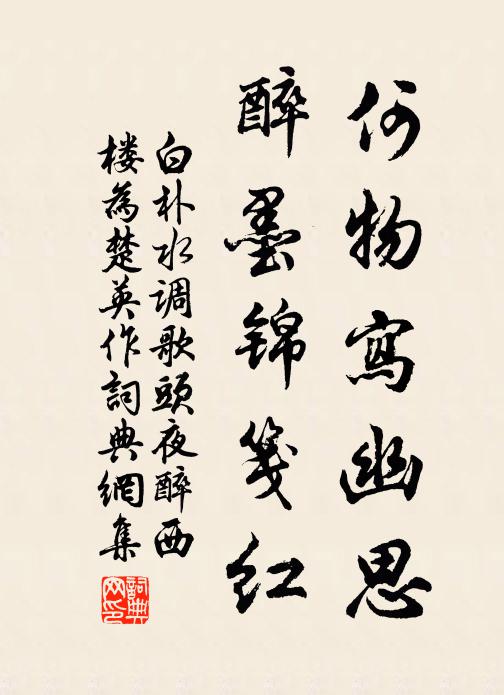 何物寫幽思
醉墨锦笺红
白朴水调歌頭夜醉西
楼為楚英作詞典網集
詞典网印